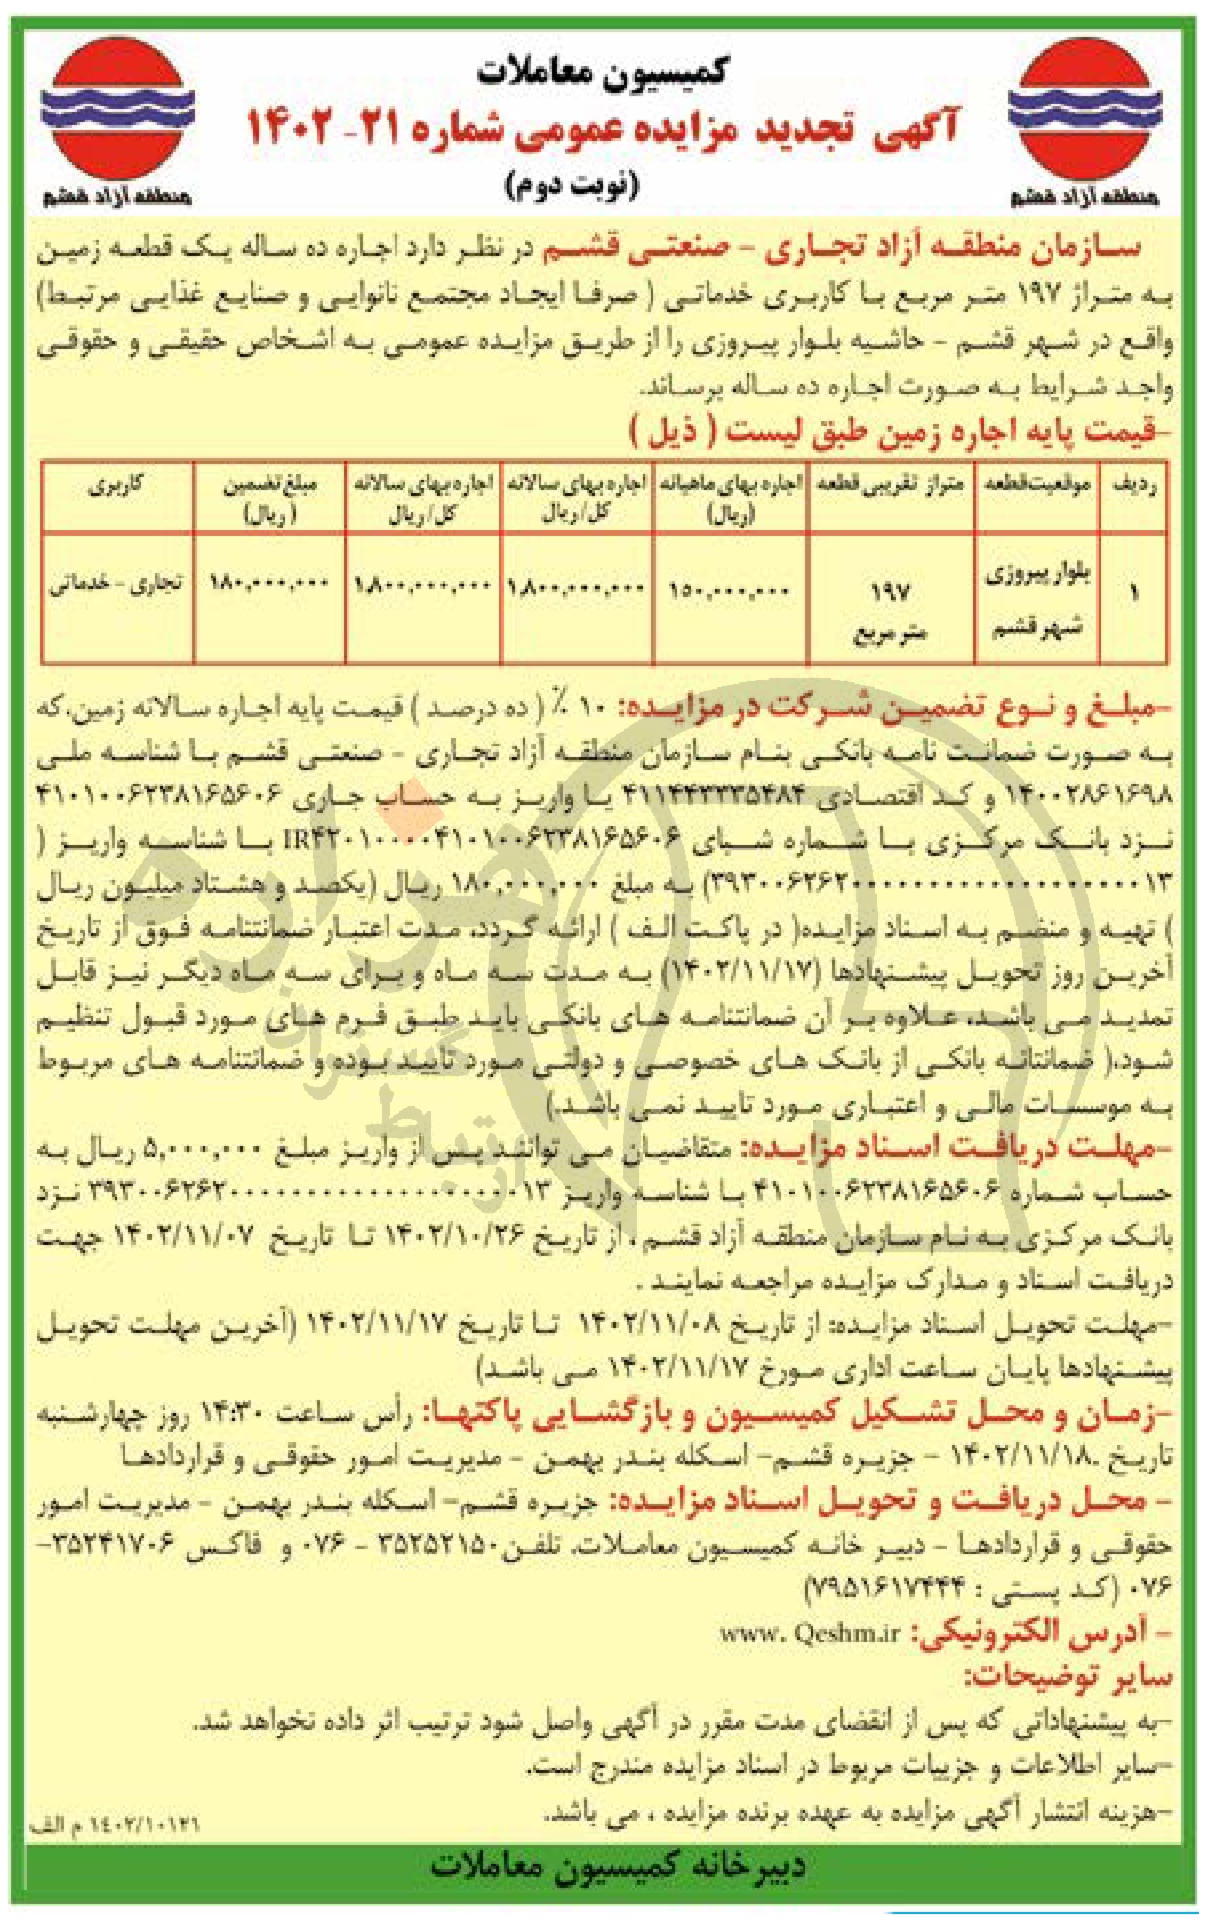 کمیسیون معاملات
آگهی تجدید مزایده عمومی شماره ۲۱- ۱۴۰۲
(نوبت دوم)
منطقه آزاد قشم
منطقه آزاد قشم
سازمان منطقه آزاد تجاری - صنعتی قشم در نظر دارد اجاره ده ساله یک قطعه زمین
به متراژ ۱۹۷ متر مربع با کاربری خدماتی ( صرفا ایجاد مجتمع نانوایی و صنایع غذایی مرتبط)
واقع در شهر قشم - حاشیه بلوار پیروزی را از طریق مزایده عمومی به اشخاص حقیقی و حقوقی
واجد شرایط به صورت اجاره ده ساله برساند.
-قیمت پایه اجاره زمین طبق لیست ( ذیل )
ردیف موقعیت قطعه متراژ تقریبی قطعه اجاره بهای ماهیانه اجاره بهای سالانه اجاره بهای سالانه مبلغ تضمین کاربری
(ریال) کل/ریال کل/ریال (ریال)
۱ بلوار پیروزی ۱۹۷ ۱۵۰,۰۰۰,۰۰۰ ۱,۸۰۰,۰۰۰,۰۰۰ ۱,۸۰۰,۰۰۰,۰۰۰ ۱۸۰,۰۰۰,۰۰۰ تجاری - خدماتی
شهر قشم متر مربع
-مبلغ و نوع تضمین شرکت در مزایده: ۱۰ ٪ ( ده درصد ) قیمت پایه اجاره سالانه زمین، که
به صورت ضمانت نامه بانکی بنام سازمان منطقه آزاد تجاری - صنعتی قشم با شناسه ملی
۱۴۰۰۲۸۶۱۶۹۸ و کد اقتصادی ۴۱۱۴۴۳۳۳۵۴۸۴ یا واریز به حساب جاری ۴۱۰۱۰۰۶۲۳۸۱۶۵۶۰۶
نزد بانک مرکزی با شماره شبای IR۴۲۰۱۰۰۰۰۴۱۰۱۰۰۶۲۳۸۱۶۵۶۰۶ با شناسه واریز (
۳۹۳۰۰۶۲۶۲۰۰۰۰۰۰۰۰۰۰۰۰۰۰۰۰۰۰۰۱۳) به مبلغ ۱۸۰,۰۰۰,۰۰۰ ریال (یکصد و هشتاد میلیون ریال
) تهیه و منضم به اسناد مزایده( در پاکت الف ) ارائه گردد، مدت اعتبار ضمانتنامه فوق از تاریخ
آخرین روز تحویل پیشنهادها (۱۴۰۲/۱۱/۱۷) به مدت سه ماه و برای سه ماه دیگر نیز قابل
تمدید می باشد، علاوه بر آن ضمانتنامه های بانکی باید طبق فرم های مورد قبول تنظیم
شود.( ضمانتانه بانکی از بانک های خصوصی و دولتی مورد تایید بوده و ضمانتنامه های مربوط
به موسسات مالی و اعتباری مورد تایید نمی باشد.)
-مهلت دریافت اسناد مزایده: متقاضیان می توانند پس از واریز مبلغ ۵,۰۰۰,۰۰۰ ریال به
حساب شماره ۴۱۰۱۰۰۶۲۳۸۱۶۵۶۰۶ با شناسه واریز ۳۹۳۰۰۶۲۶۲۰۰۰۰۰۰۰۰۰۰۰۰۰۰۰۰۰۰۰۱۳ نزد
بانک مرکزی به نام سازمان منطقه آزاد قشم ، از تاریخ ۱۴۰۲/۱۰/۲۶ تا تاریخ ۱۴۰۲/۱۱/۰۷ جهت
دریافت اسناد و مدارک مزایده مراجعه نمایند .
-مهلت تحویل اسناد مزایده: از تاریخ ۱۴۰۲/۱۱/۰۸ تا تاریخ ۱۴۰۲/۱۱/۱۷ (آخرین مهلت تحویل
پیشنهادها پایان ساعت اداری مورخ ۱۴۰۲/۱۱/۱۷ می باشد)
-زمان و محل تشکیل کمیسیون و بازگشایی پاکتها: رأس ساعت ۱۴:۳۰ روز چهارشنبه
تاریخ .۱۴۰۲/۱۱/۱۸ - جزیره قشم- اسکله بندر بهمن - مدیریت امور حقوقی و قراردادها
- محل دریافت و تحویل اسناد مزایده: جزیره قشم- اسکله بندر بهمن - مدیریت امور
حقوقی و قراردادها - دبیر خانه کمیسیون معاملات. تلفن۳۵۲۵۲۱۵۰ - ۰۷۶ و فاکس ۳۵۲۴۱۷۰۶-
۰۷۶ (کد پستی : ۷۹۵۱۶۱۷۴۴۴)
- آدرس الکترونیکی: www. Qeshm.ir
سایر توضیحات:
-به پیشنهاداتی که پس از انقضای مدت مقرر در آگهی واصل شود ترتیب اثر داده نخواهد شد.
-سایر اطلاعات و جزییات مربوط در اسناد مزایده مندرج است.
-هزینه انتشار آگهی مزایده به عهده برنده مزایده ، می باشد.
۱۴۰۲/۱۰۱۲۱ م الف
دبیرخانه کمیسیون معاملات